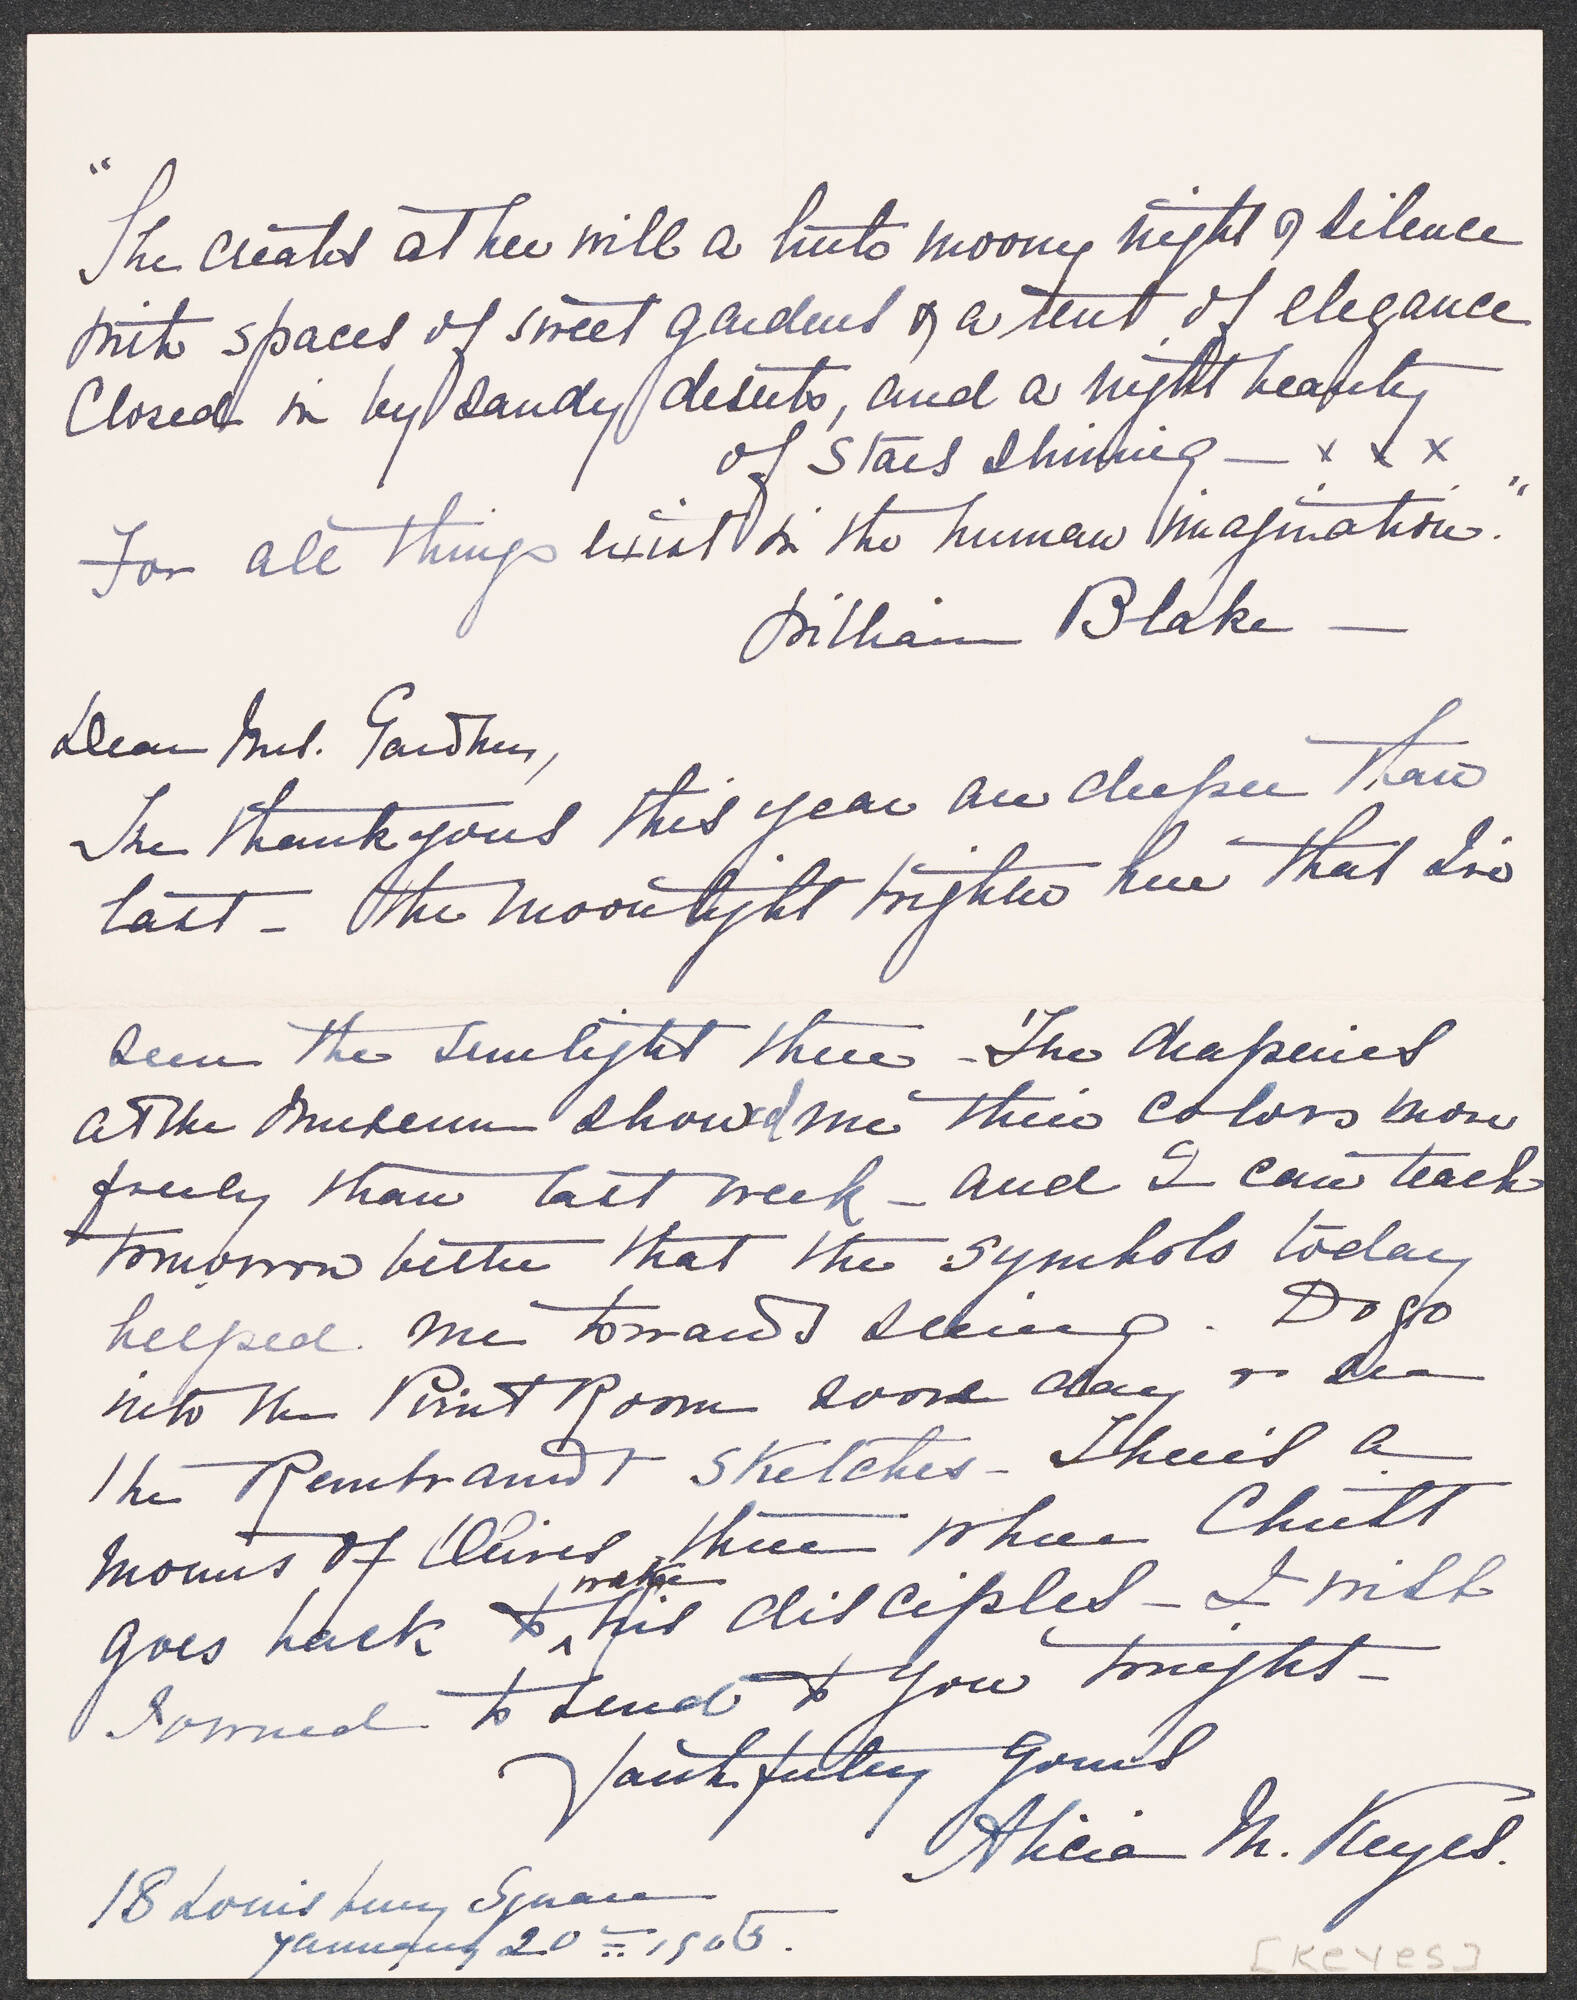 "She creates at her will a little moony night & silence
with spaces of sweet gardens & a tent of elegance
Closed in by sandy deserts, and a night beauty
of stars shining — x x x
For all things exist in the human imagination."
William Blake —
Dear Mrs. Gardner,
The thankyous this year are deeper than
last — the moonlight brighter here that I've
seen the sunlight there — The draperies
at the Museum showed me their colors more
freely than last week — and I can teach
tomorrow better that the symbols today
helped me towards seeing. Do go
into the Print Room some day & see
the Rembrandt sketches — There's a
Mount of Olives there where Christ
goes back to wake his disciples — I wish
I owned to send to you tonight —
Faithfully yours
Alicia M. Keyes.
18 Louisburg Square
January 20th 1905.
[Keyes]